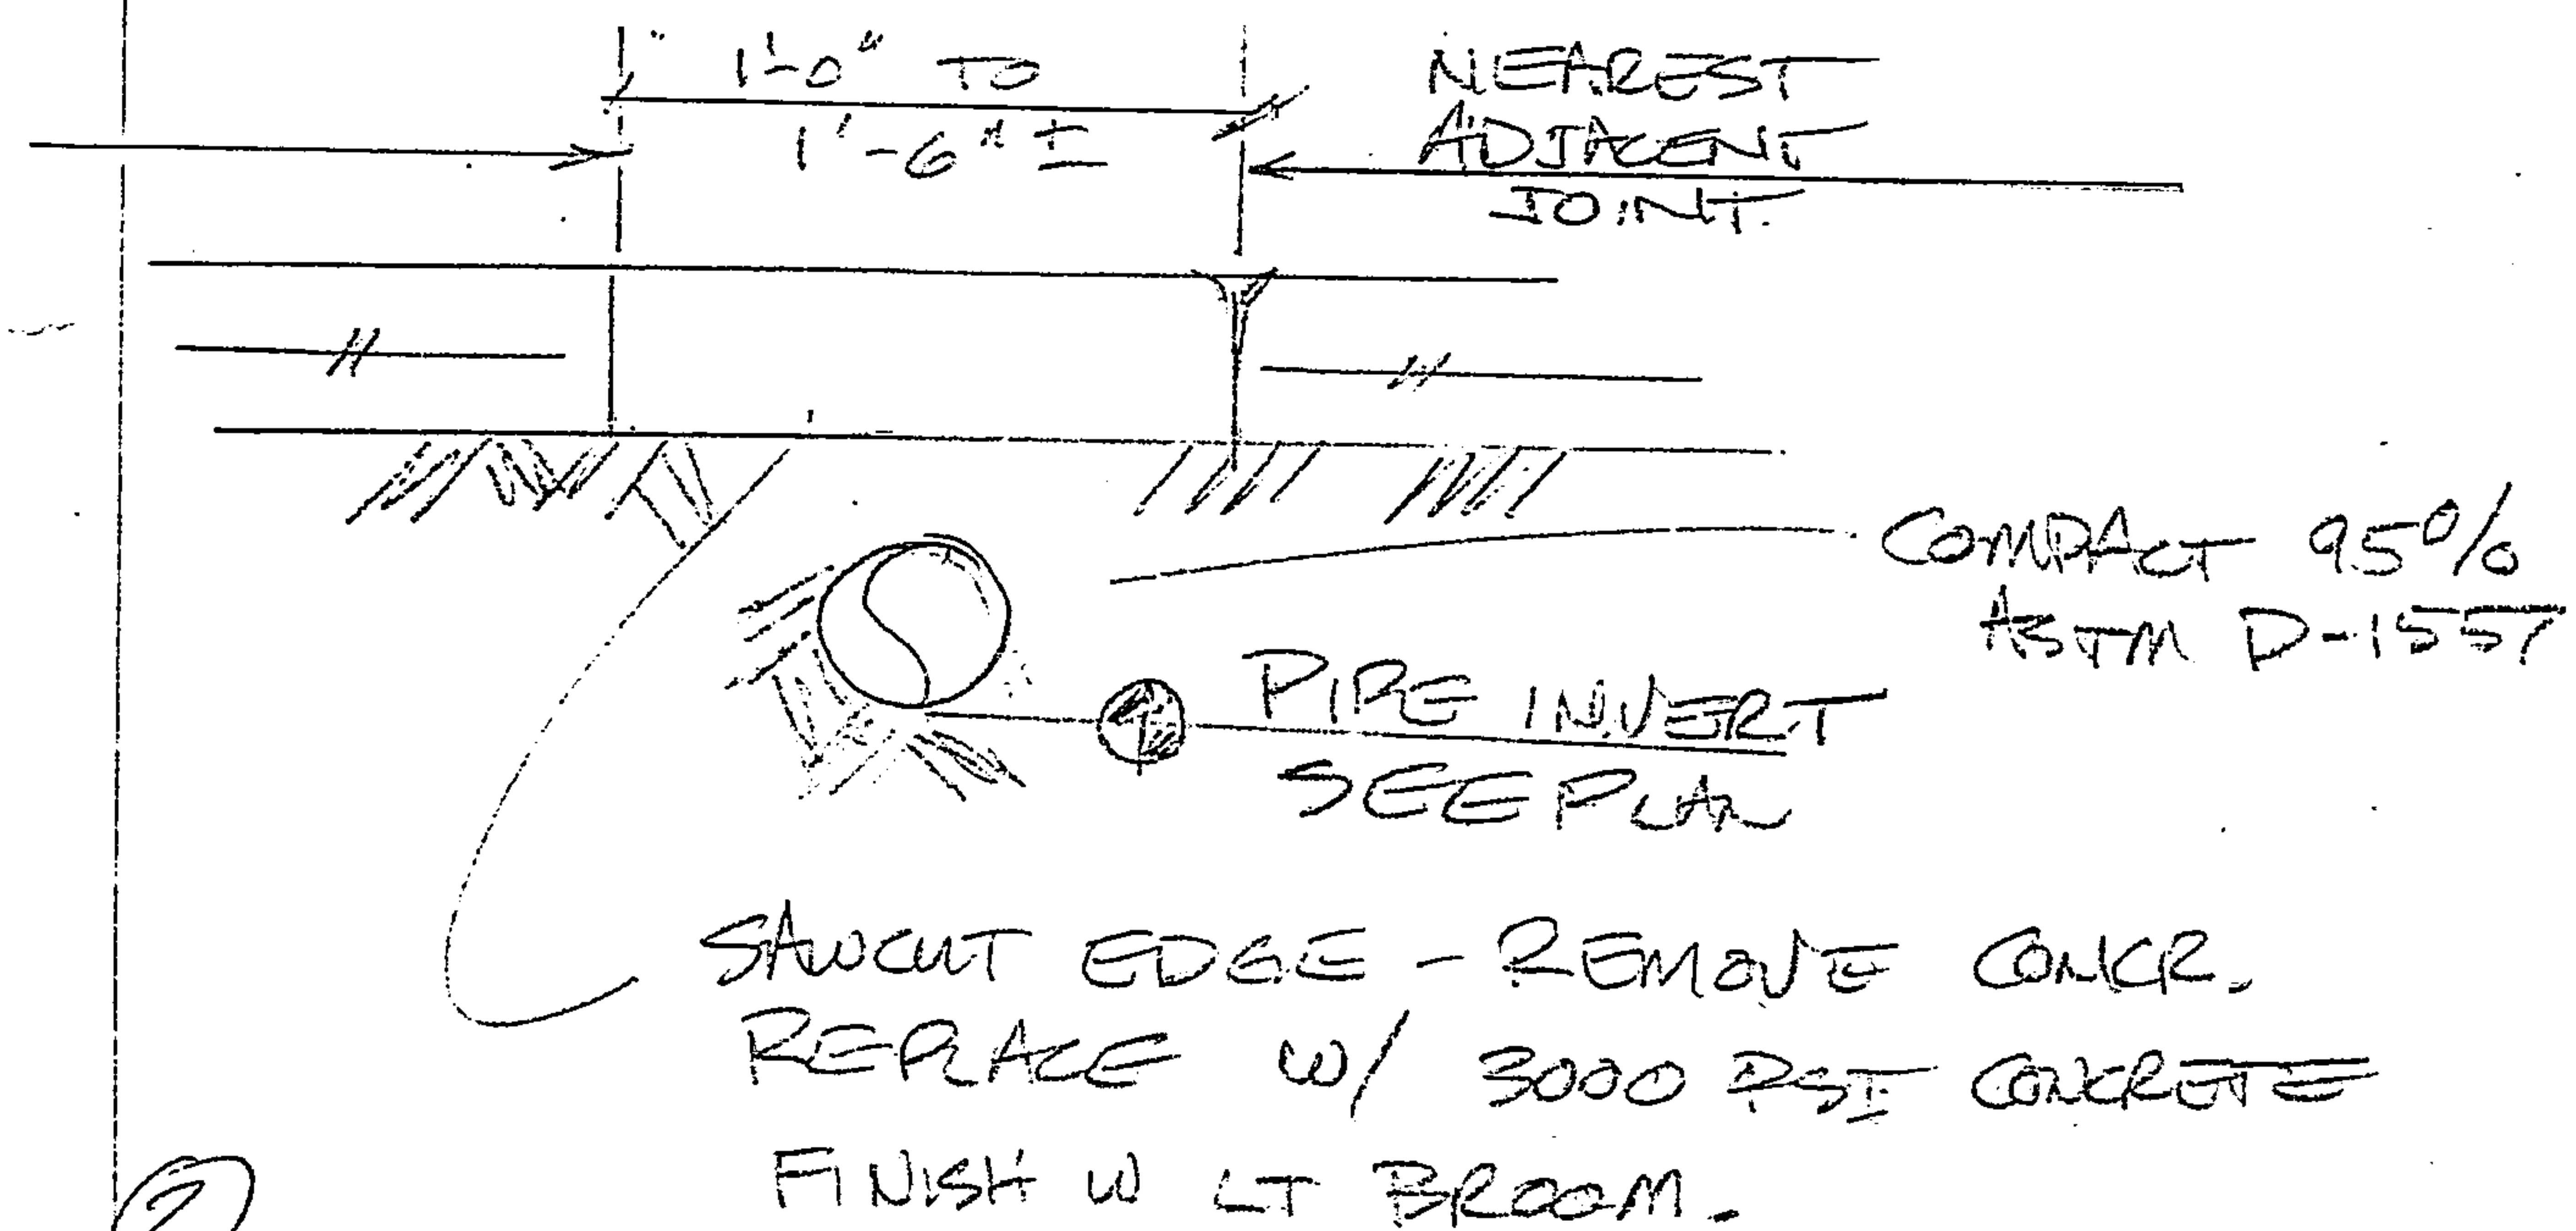 1'-0" TO
1'-6" ±
NEAREST
ADJACENT
JOINT.
COMPACT 95%
ASTM D-1557
PIPE INVERT
SEE PLAN
SAWCUT EDGE - REMOVE CONCR.
REPLACE W/ 3000 PSI CONCRETE
FINISH W LT BROOM.